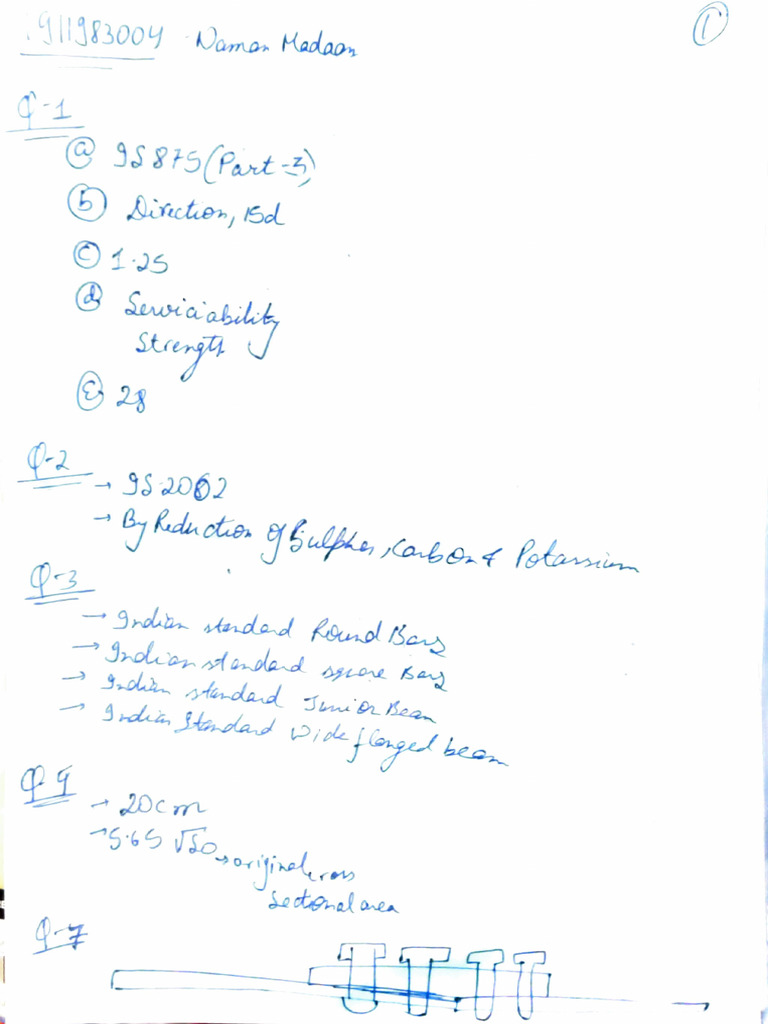 1911983004 Naman Madaan
1
Q-1
a IS 875 (Part-3)
b Direction, 15d
c 1.25
d Serviciability
Strength
e 28
Q-2
→ IS 2062
→ By Reduction of Sulpher, Carbon & Potassium
Q-3
→ Indian standard Round Bars
→ Indian standard square Bars
→ Indian standard Junior Beam
→ Indian Standard wide flanged beam
Q-4
→ 20cm
→ 5.65 √S0 → original cross
sectional area
Q-7